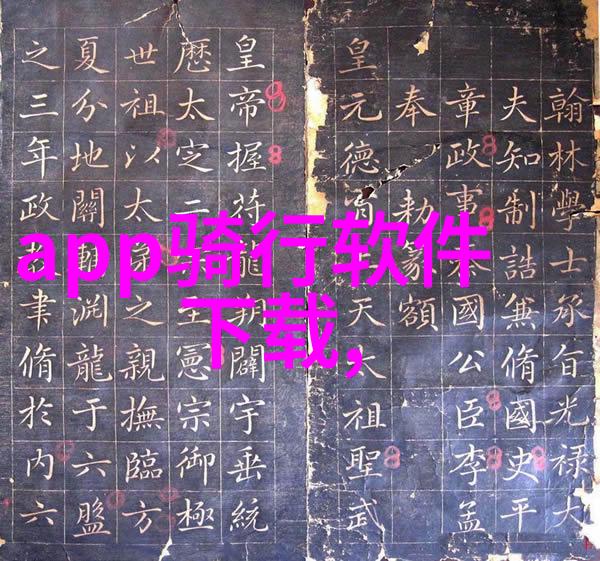 翰林學士承旨光祿大
夫知制誥兼脩國史平
章政事國公臣李孟
奉
勑篆額
皇元德天太祖聖武
皇帝握符龍朔闢宇垂統
厯太定二憲宗御極
世祖以太之親撫臨方
夏分地關輔淵龍于六盤
之三年政教聿脩於內六
app骑行软件
下载,